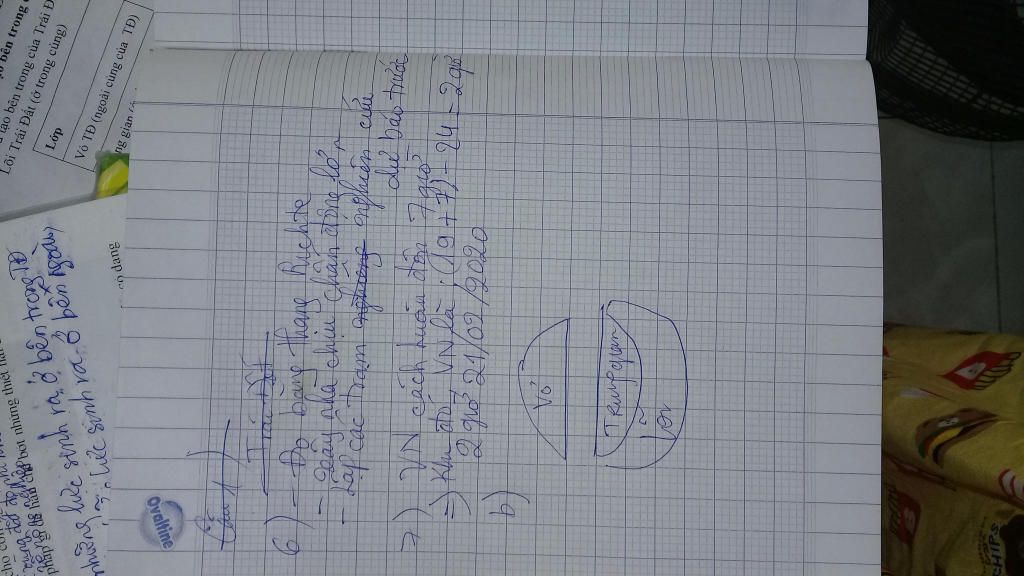 Ovaltine
Câu 1)
Trái Đất
6) - Đo bằng thang Richte
- Xây nhà chịu chấn động lớn
- Lập các trạm nghiên cứu
dự báo trước
7) VN cách luân đôn 7 giờ
=) Khi đó VN là: (19 + 7) - 24 = 2 giờ
2 giờ 21/02/2020
b)
Vỏ
Trung gian
Lõi
tạo bên trong của Trái Đ
Lõi Trái Đất (ở trong cùng)
Lớp
Vỏ TĐ (ngoài cùng của TĐ)
lực sinh ra ở bên trong TĐ
lực sinh ra ở bên ngoài
CHIPS